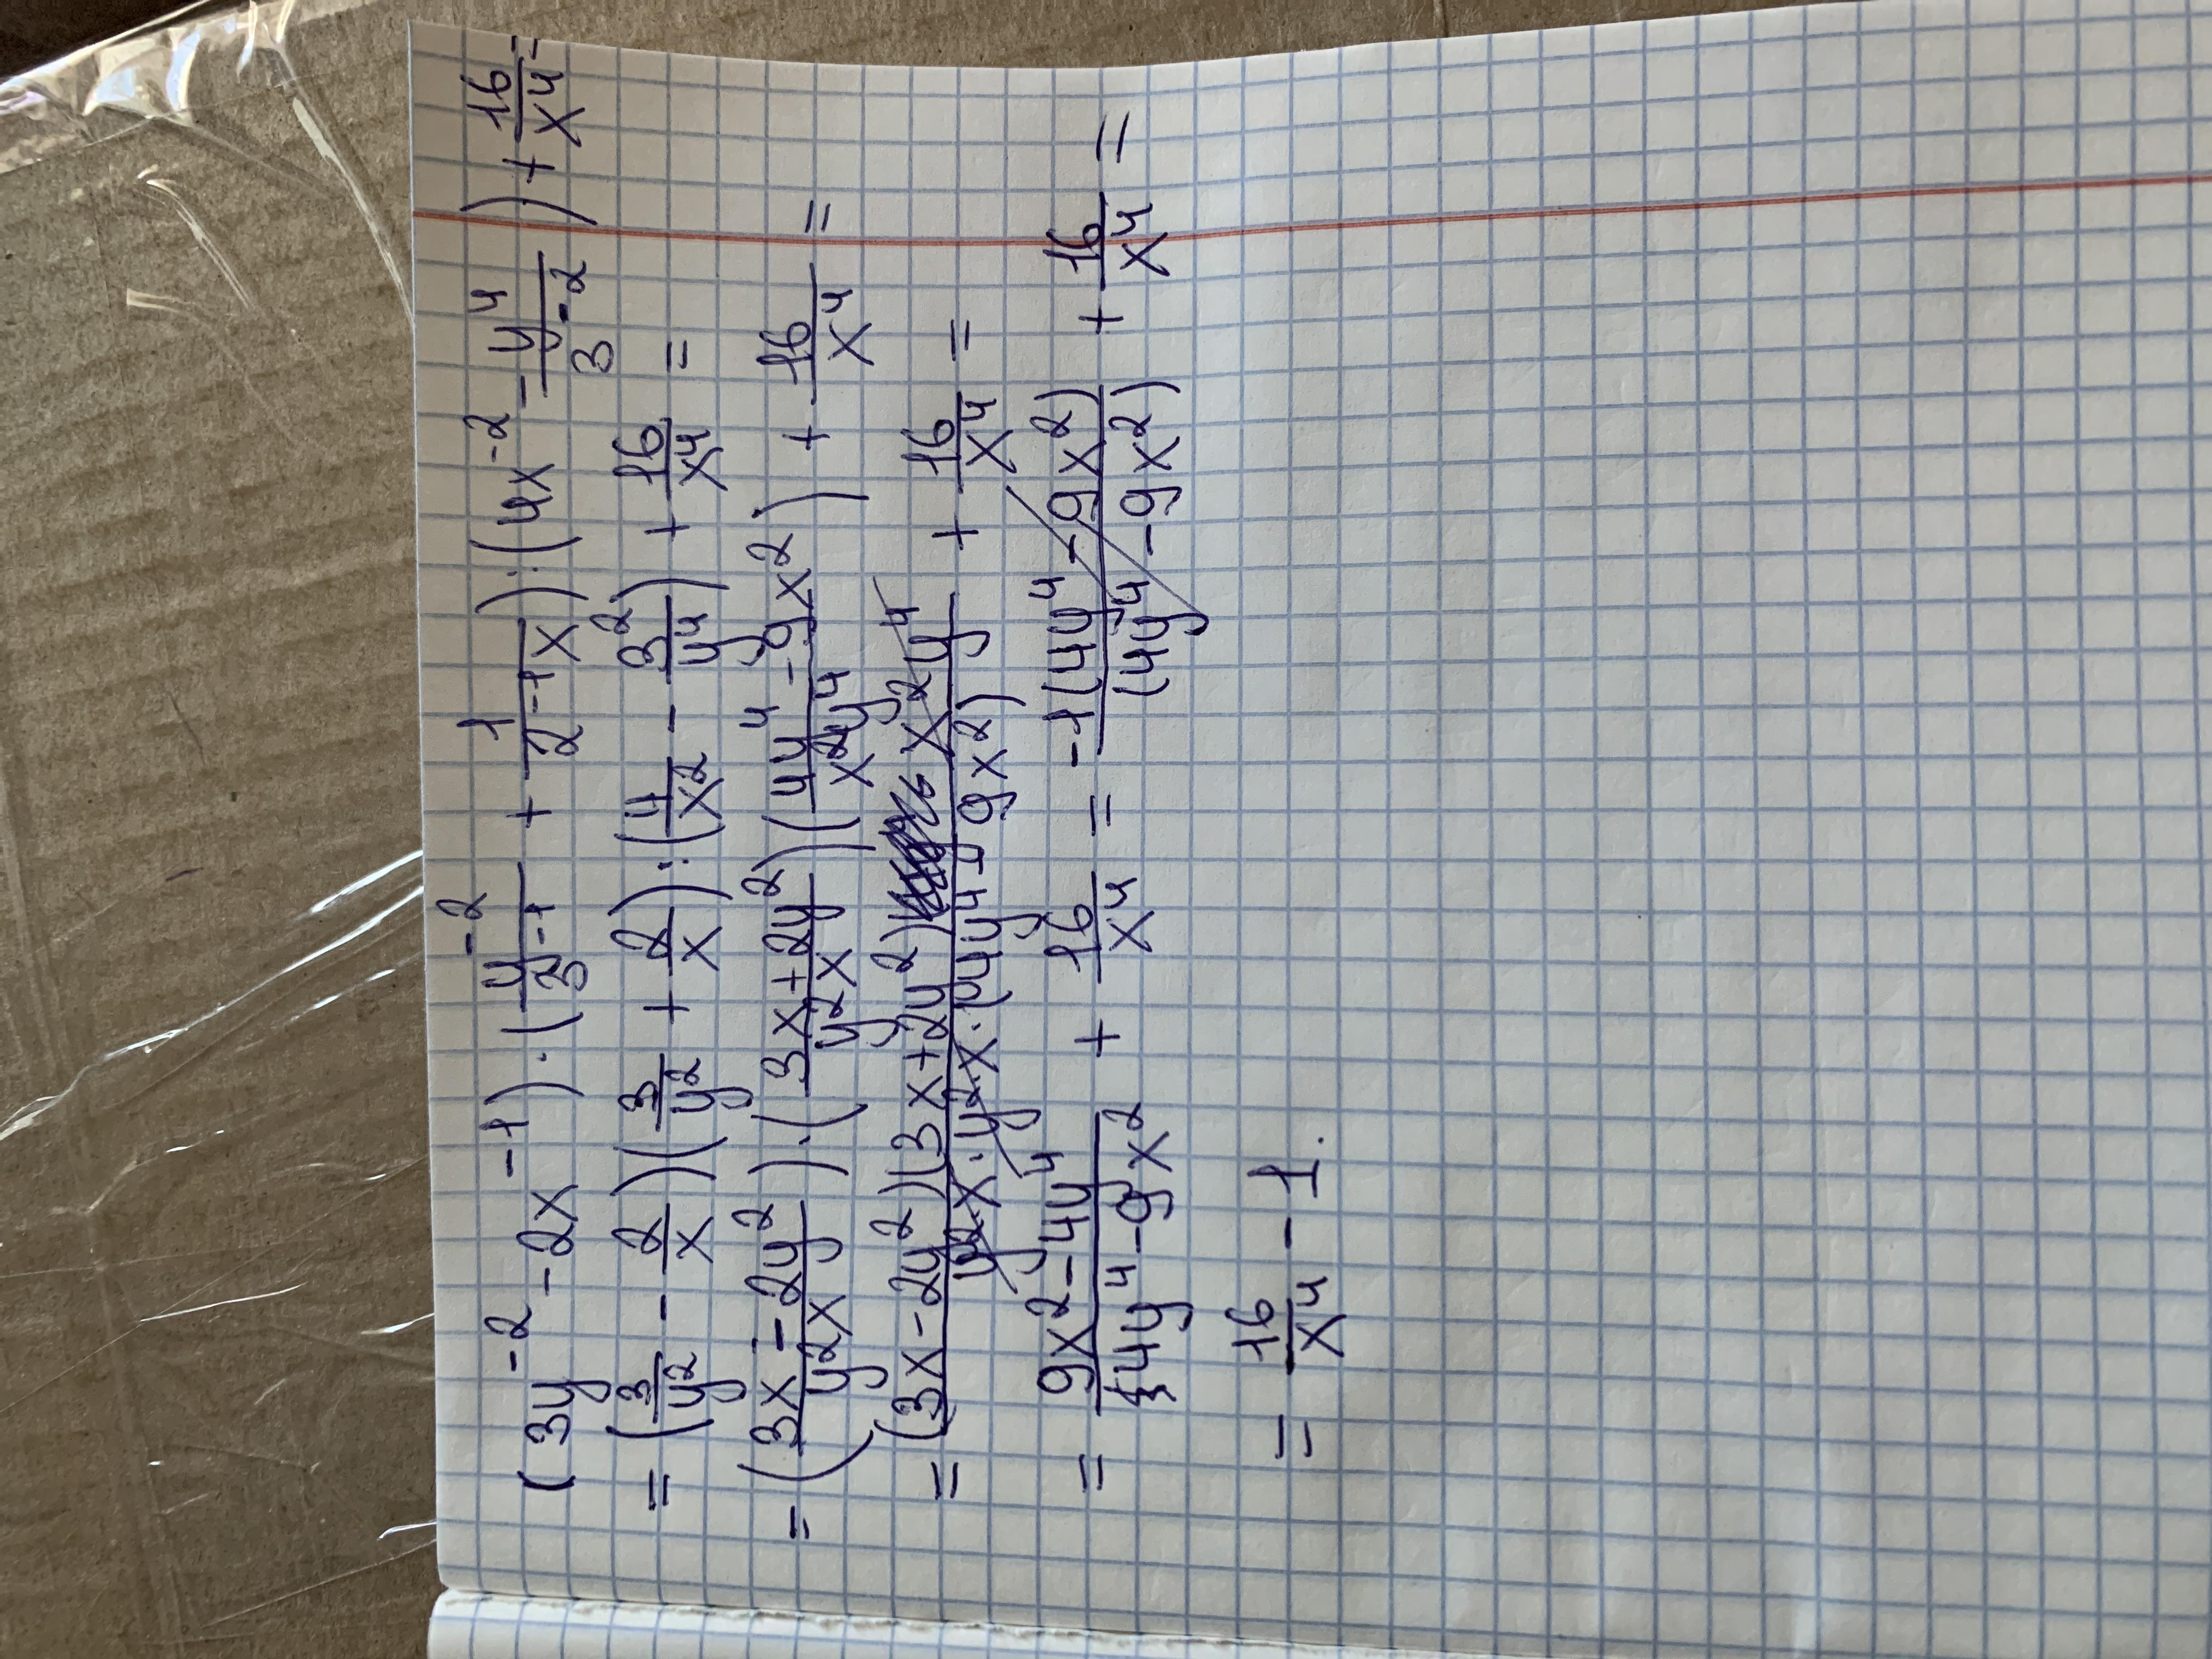 (3y^-2 - 2x^-1) · (y^-2/3^-1 + 1/2^-1x) : (4x^-2 - y^4/3^-2) + 16/x^4 =
= (3/y^2 - 2/x)(3/y^2 + 2/x) : (4/x^2 - 3^2/y^4) + 16/x^4 =
= (3x - 2y^2/y^2x) · (3x+2y^2/y^2x)(4y^4 - 9x^2/x^2y^4) + 16/x^4 =
= (3x - 2y^2)(3x+2y^2) x^2y^4/y^2x · y^2x · (4y^4 - 9x^2) + 16/x^4 =
= 9x^2 - 4y^4/4y^4 - 9x^2 + 16/x^4 = -1(4y^4 - 9x^2)/(4y^4 - 9x^2) + 16/x^4 =
= 16/x^4 - 1.